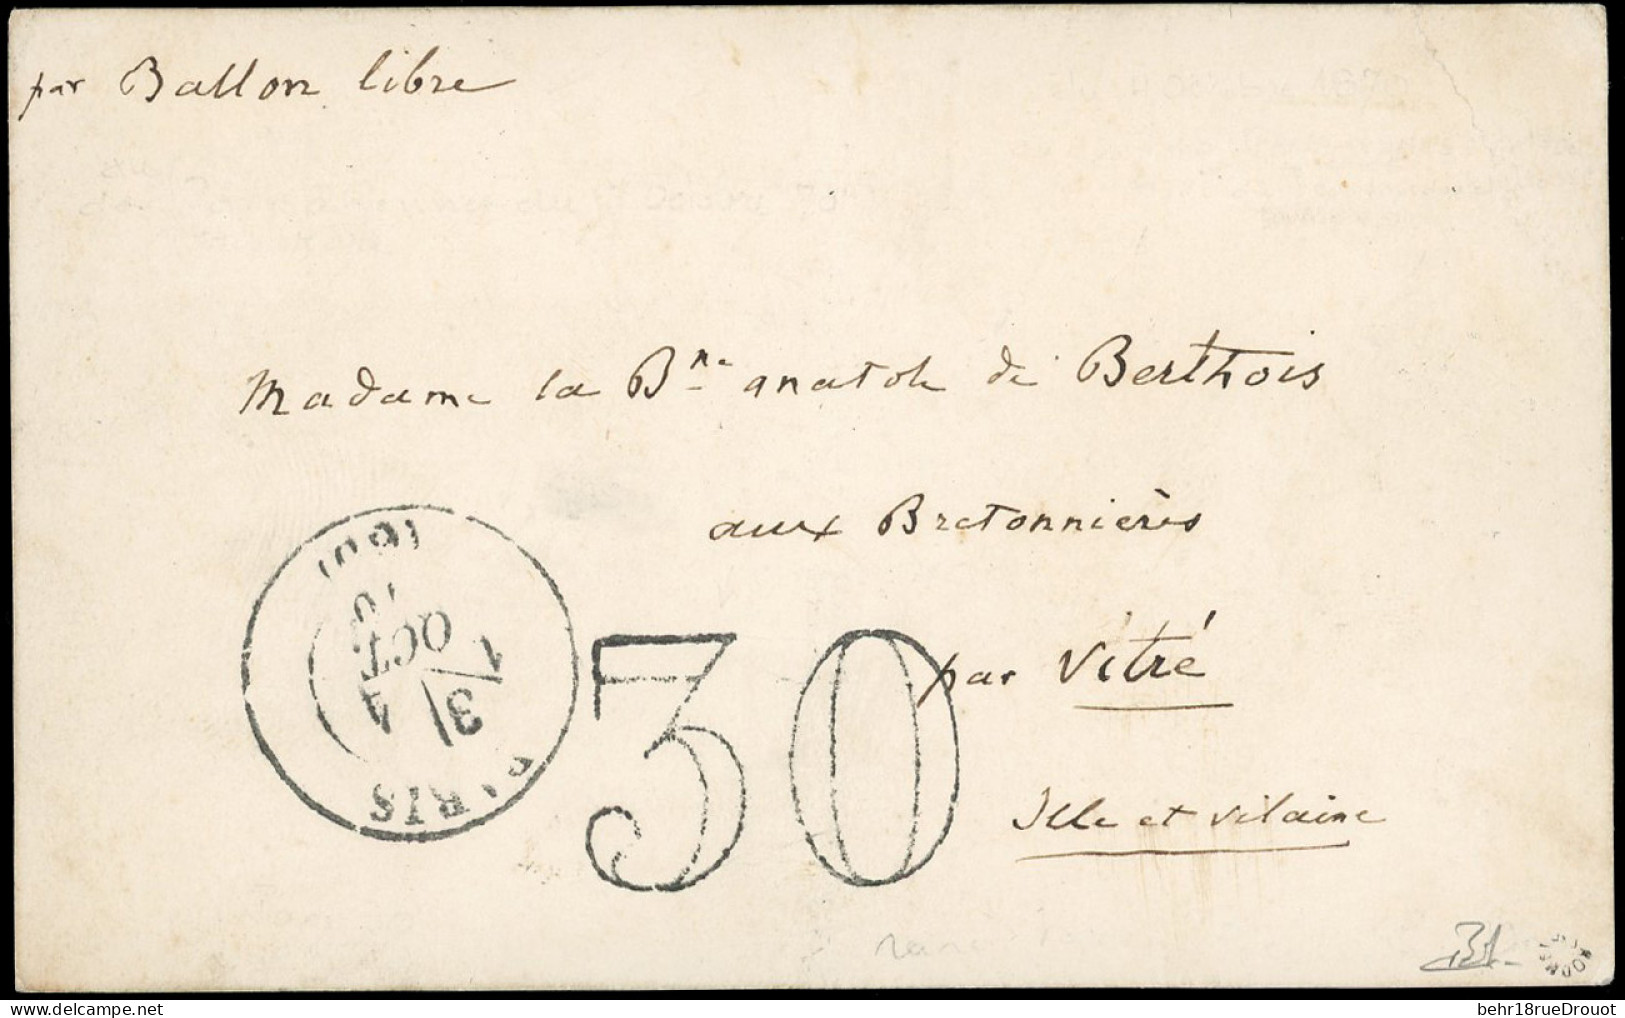 par Ballon libre
Madame la Bne anatole de Berthois
aux Bretonnières
par Vitré
Ille et vilaine
PARIS
3
1
OCT.
70
(60)
30
behr18rueDrouot